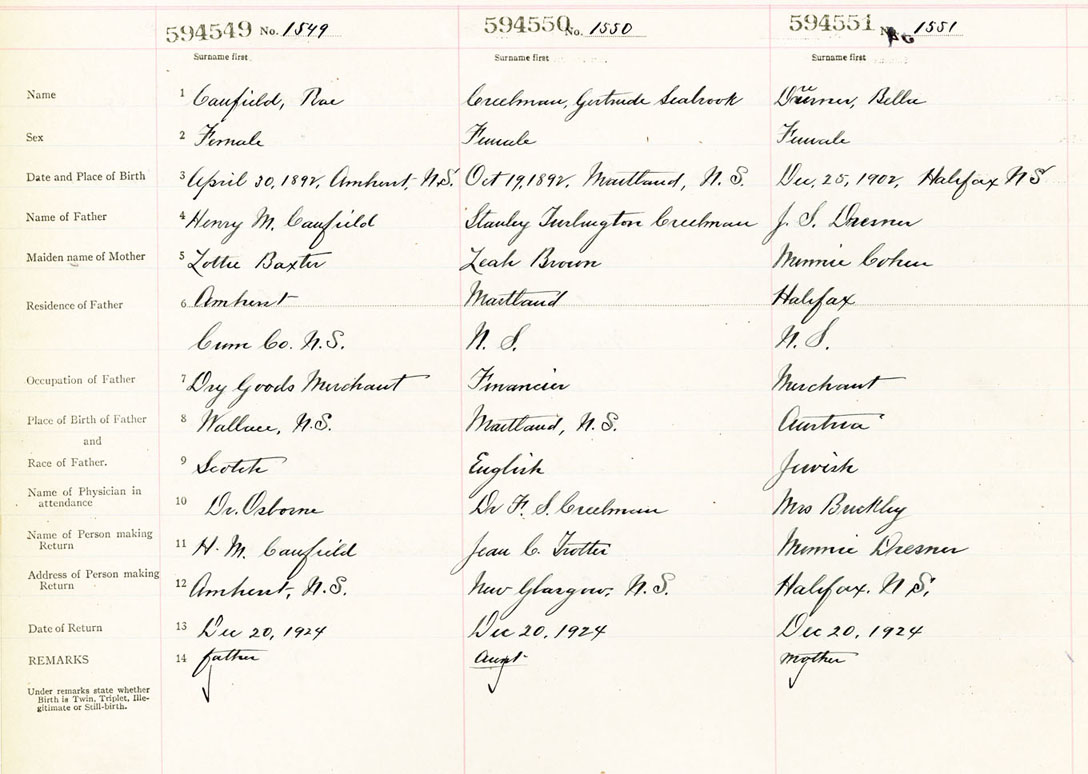 594549 No. 1549 594550 No. 1550 594551 No. 1551
Surname first. Surname first Surname first
Name 1 Caufield, Rae Creelman, Gertrude Seabrook Dresner, Bella
Sex 2 Female Female Female
Date and Place of Birth 3 April 30, 1892, Amherst, N.S. Oct 19, 1892, Maitland, N.S. Dec, 25, 1902, Halifax NS
Name of Father 4 Henry M. Caufield Stanley Turlington Creelman J. S. Dresner
Maiden name of Mother 5 Lottie Baxter Leah Brown Minnie Cohen
Residence of Father 6 Amherst Maitland Halifax
Cum Co. N.S. N. S. N. S.
Occupation of Father 7 Dry Goods Merchant Financier Merchant
Place of Birth of Father 8 Wallace, N.S. Maitland, N.S. Austria
and
Race of Father. 9 Scotch English Jewish
Name of Physician in
attendance 10 Dr. Osborne Dr F. S. Creelman Mrs Buckley
Name of Person making
Return 11 H. M. Caufield Jean C. Trotter Minnie Dresner
Address of Person making
Return 12 Amherst, N.S. New Glasgow, N.S. Halifax. N S,
Date of Return 13 Dec 20, 1924 Dec 20, 1924 Dec 20, 1924
REMARKS 14 father aunt mother
Under remarks state whether
Birth is Twin, Triplet, Ille-
gitimate or Still-birth.